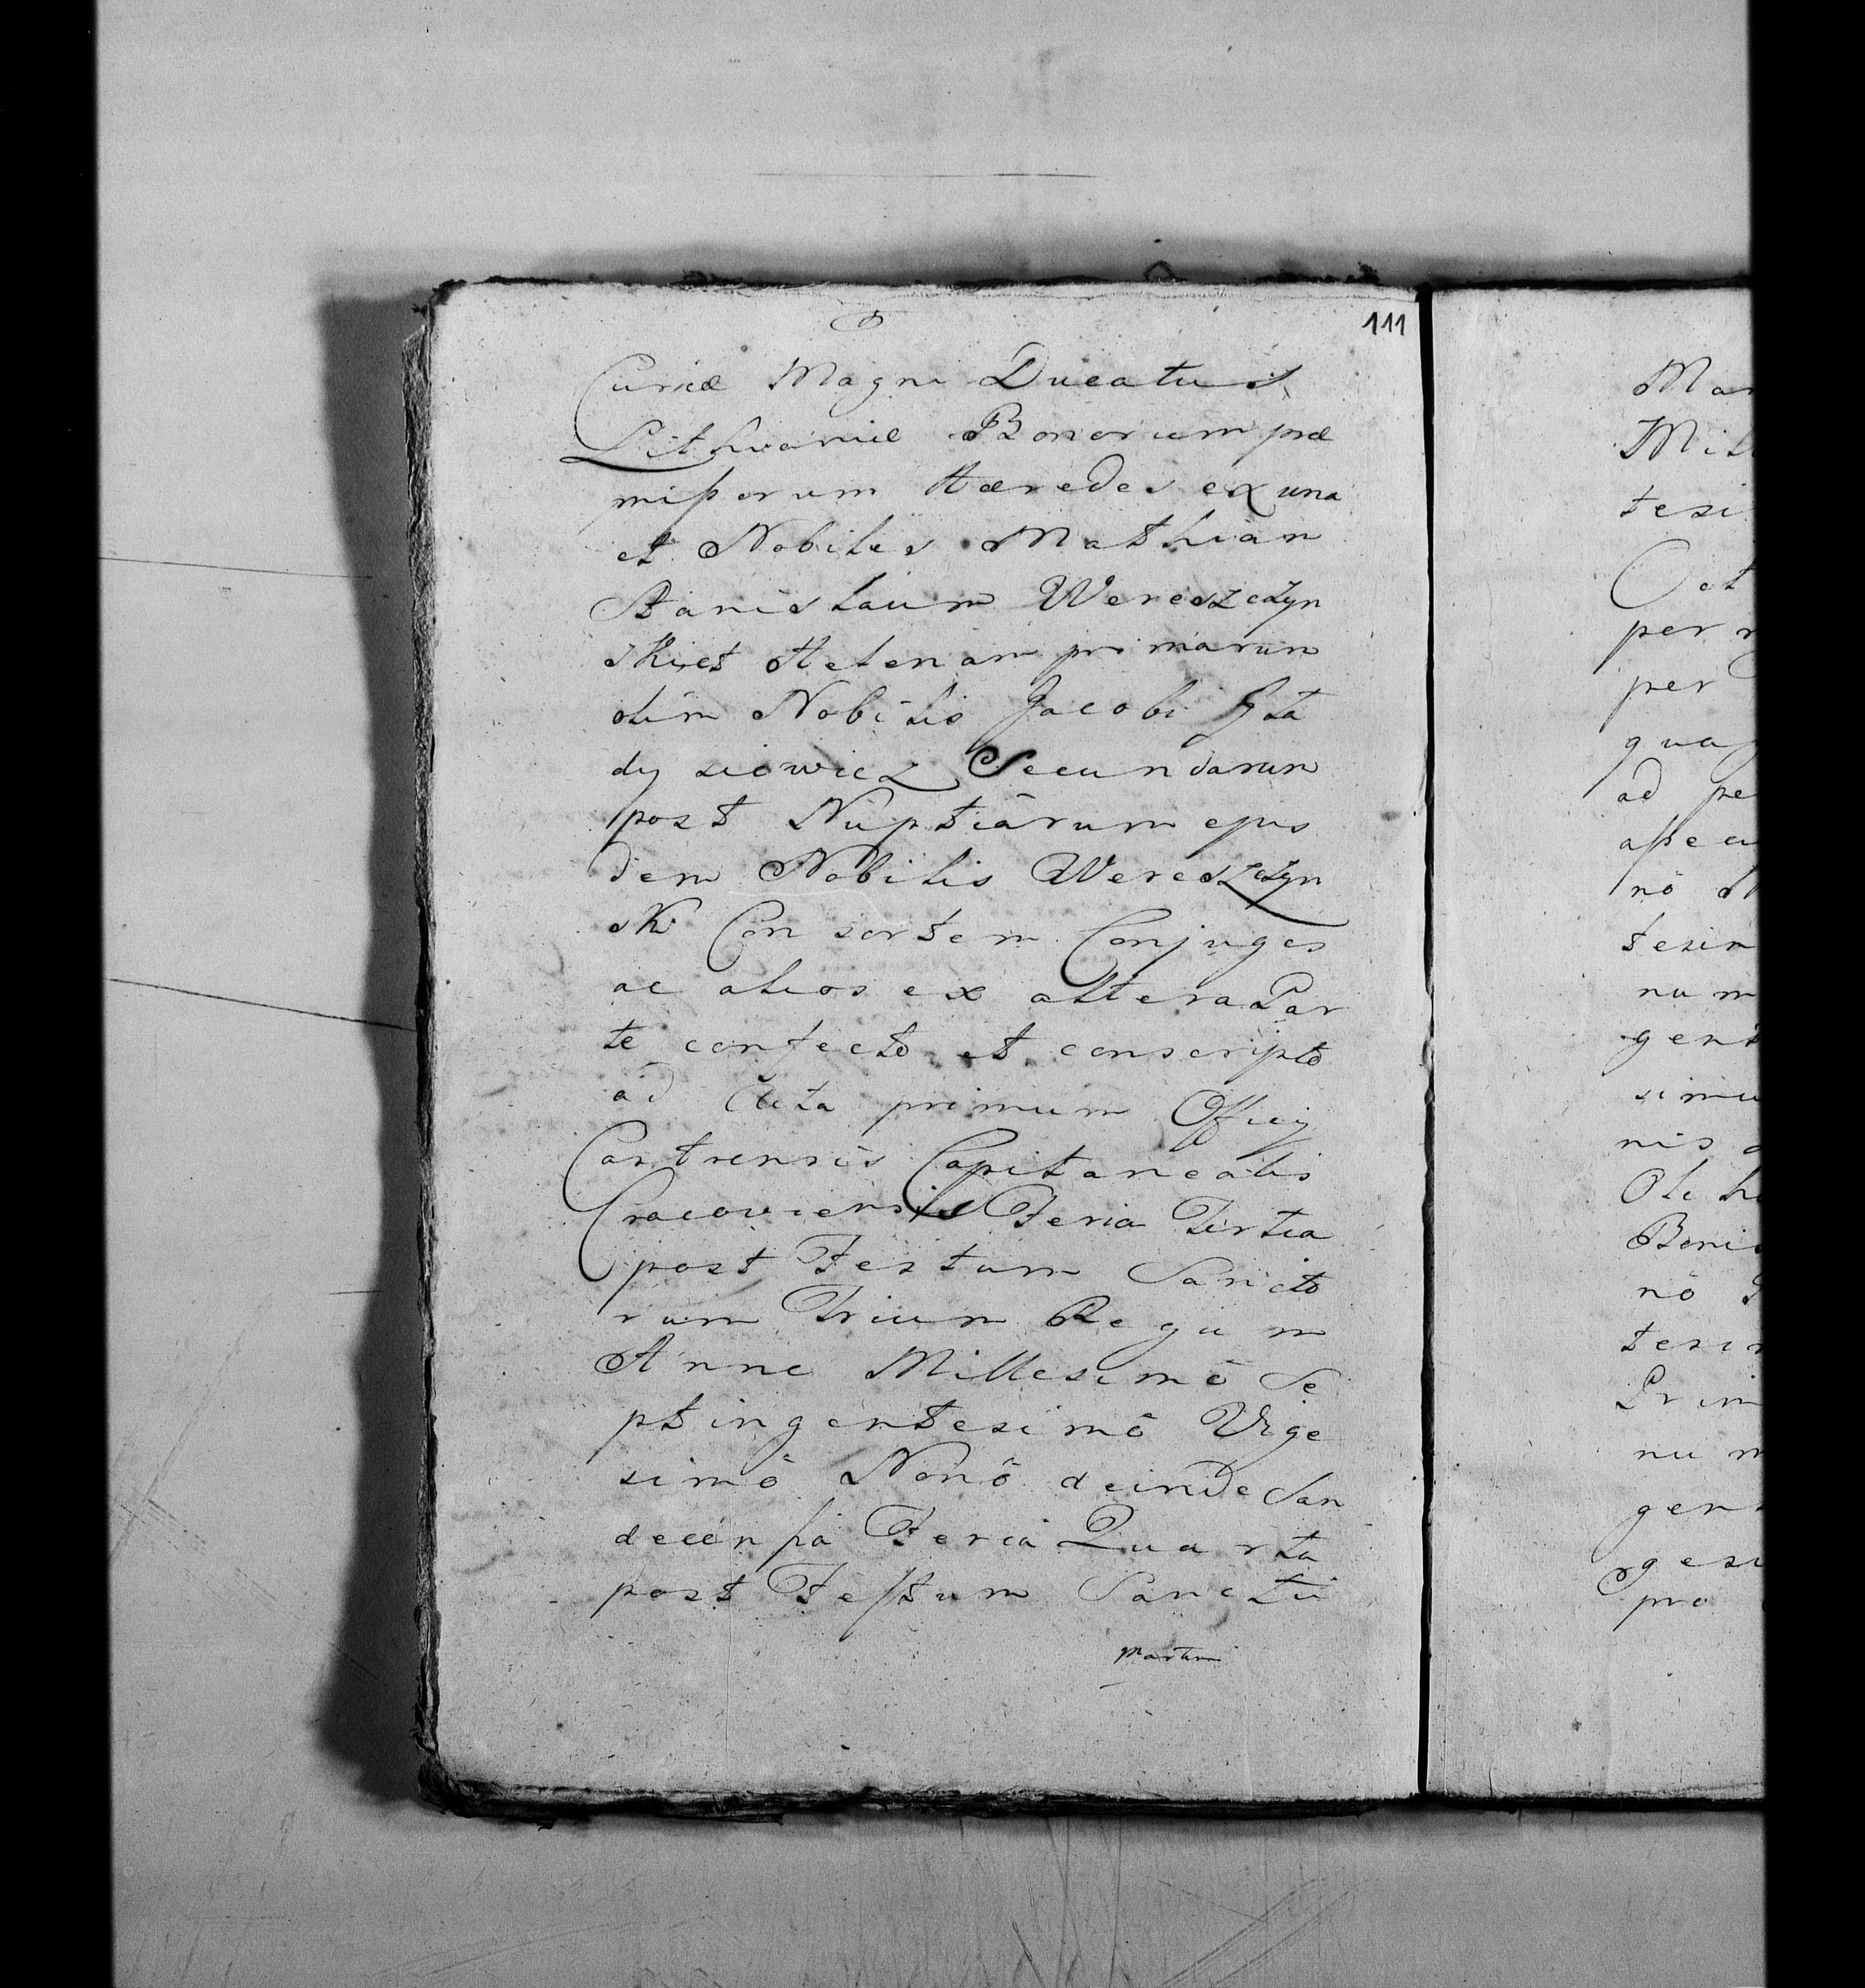 111
Curiæ Magni Ducatus
Lithvaniæ Bonorum præ
mißorum Hæredes ex una
et Nobiles Mathiam
Stanislaum Wereszczyn
ski et Helenam primarum
olim Nobilis Jacobi Gła
dysiowicz Secundarum
post Nuptiârum ejus
dem Nobilis Wereszczyn
ski Consortem Conjuges
ac alios ex altera Par
te confectô et conscriptô
ad Acta primum Officij
Castrensis Capitanealis
Cracoviensis Feria Tertia
post Festum Sancto
rum Trium Regum
Anno Millesimô Se
ptingentesimô Vige
simô Nonô deinde San
decenßa Feria Quarta
post Festum Sancti
Martini
Mar
Mill
tesi
Oct
per
per
qua
ad pe
nô
tesim
num
gent
simu
nis
Boni
nô
tesi
Prim
num
gen
gesi
pro